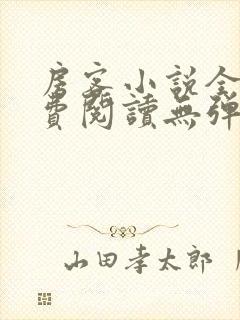 房客小说全
費閱讀無弹
山田孝太郎